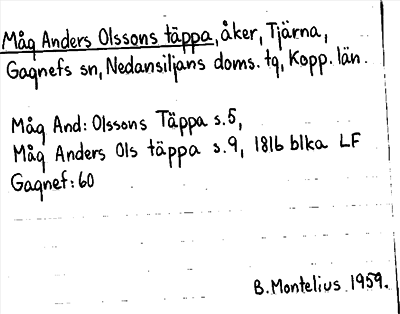 Måg Anders Olssons täppa, åker, Tjärna,
Gagnefs sn, Nedansiljans doms. tg, Kopp. län.
Måg And: Olssons Täppa s.5,
Måg Anders Ols täppa s.9, 1816 blka LF
Gagnef: 60
B. Montelius 1959.